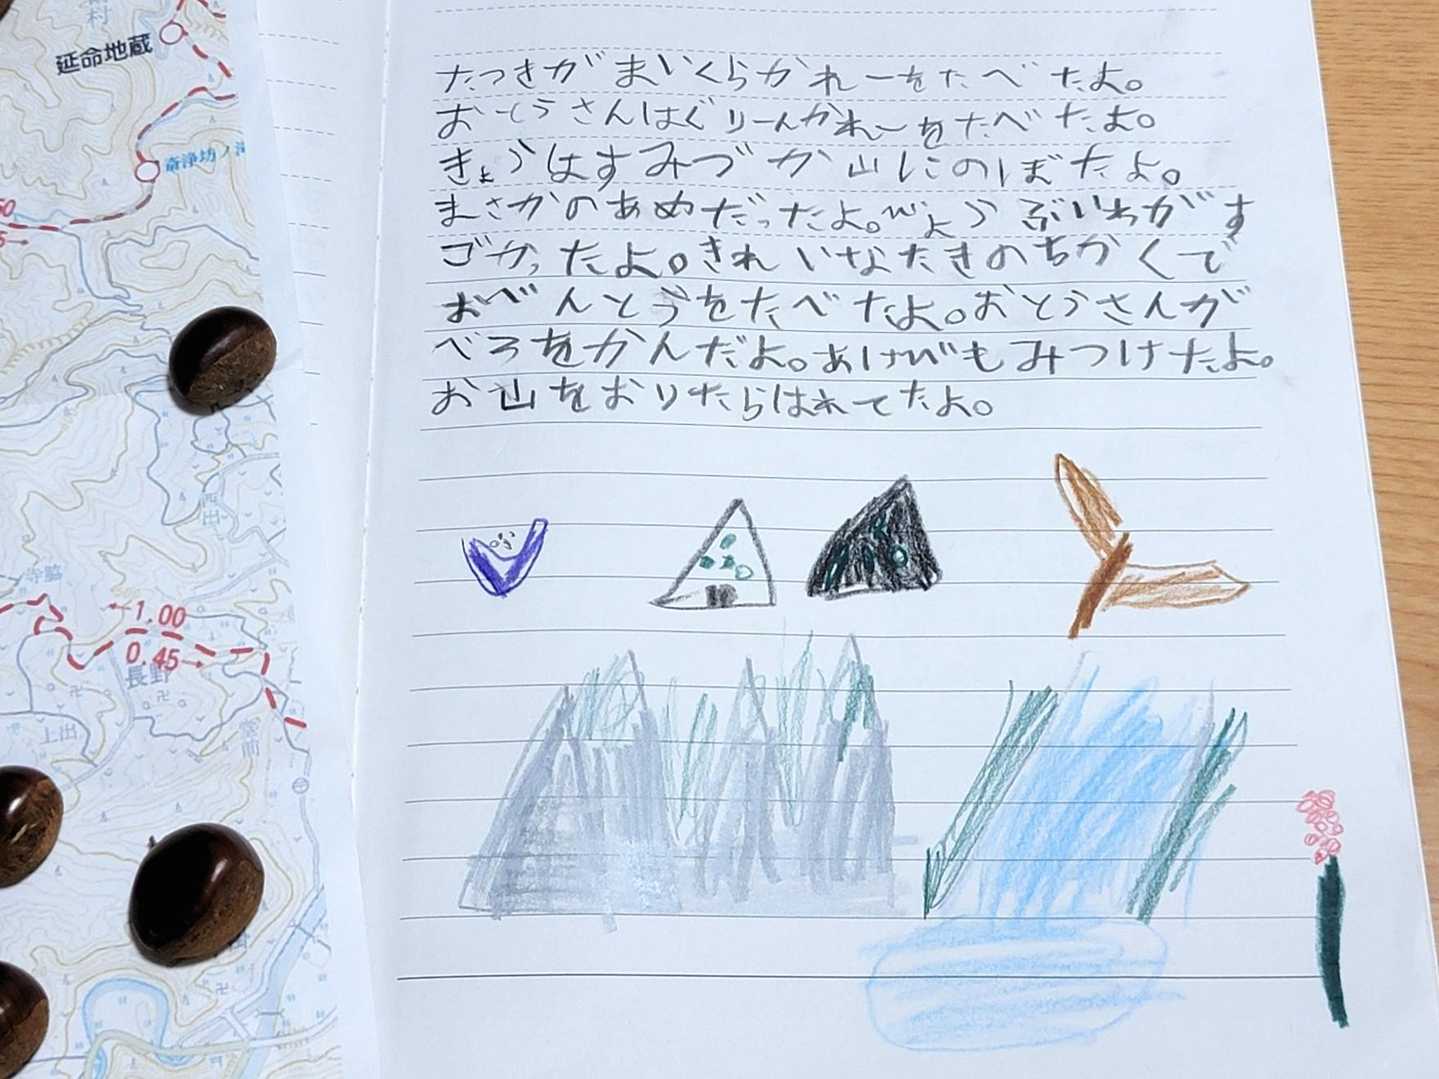 延命地蔵
斎浄坊ノ滝
寺脇
←1.00
0.45→
長野
上出
堂前
西出
たつきがまいくらかれーをたべたよ。
おとうさんはぐりーんかれーをたべたよ。
きょうはすみづか山にのぼたよ。
まさかのあめだったよ。びょうぶいわがす
ゴかったよ。きれいなたきのちかくで
おべんとうをたべたよ。おとうさんが
べろをかんだよ。あけびもみつけたよ。
お山をおりたらはれてたよ。